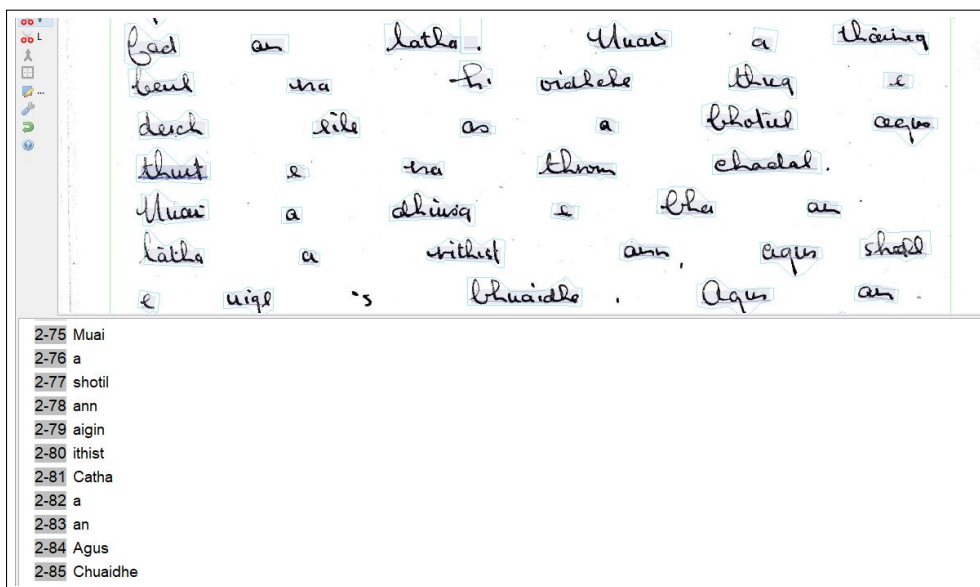 V
L
...
fad an latha. Nuair a thàinig
beul na h. oidhche thug e
deoch eile as a bhotul agus
thuit e na throm chadal.
Nuair a dhùisg e bha an
làtha a rithist ann, agus sheall
e uige 's bhuaidhe. Agus an
2-75 Muai
2-76 a
2-77 shotil
2-78 ann
2-79 aigin
2-80 ithist
2-81 Catha
2-82 a
2-83 an
2-84 Agus
2-85 Chuaidhe